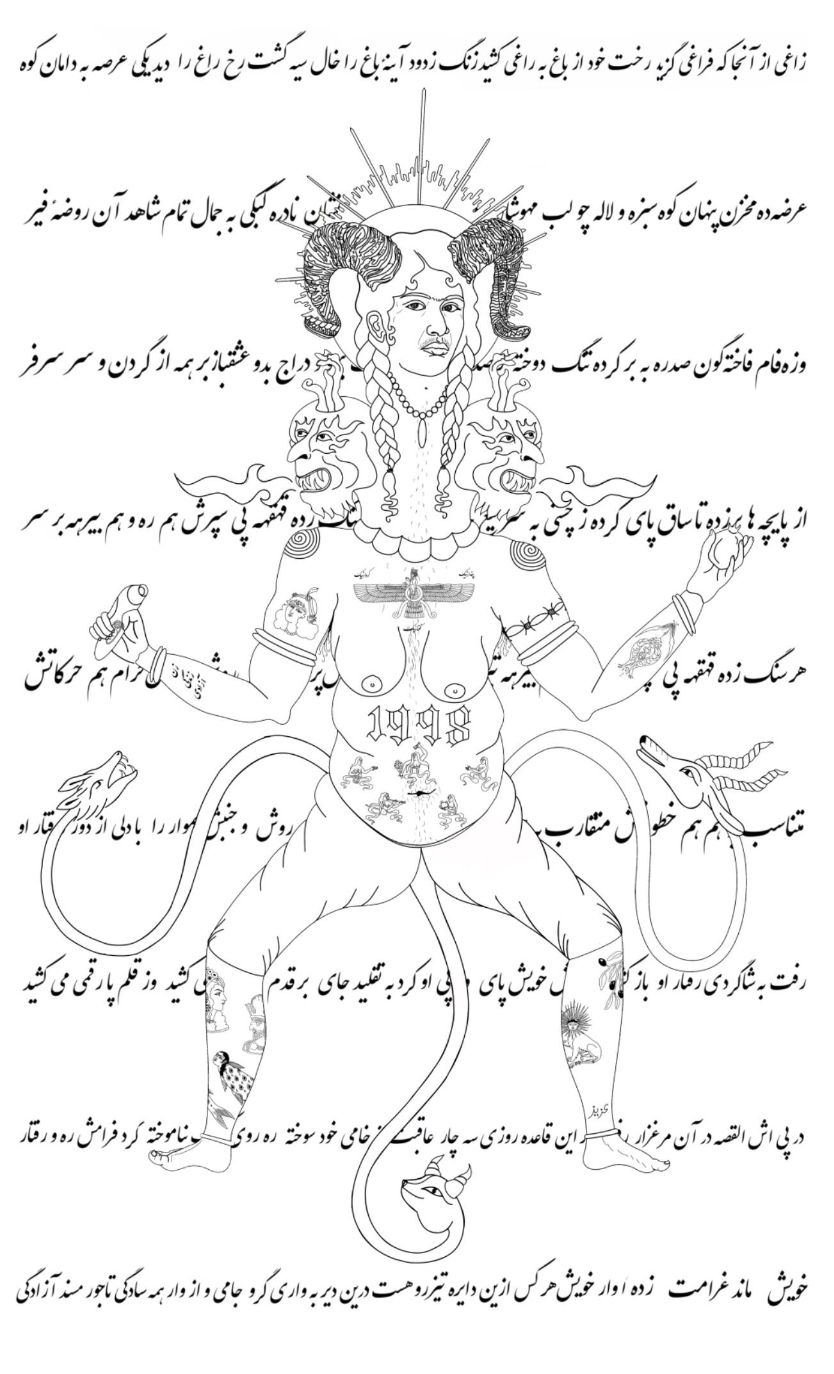 زاغی از آنجا که فراغی گزید رخت خود از باغ به راغی کشید زنگ زدود آینهٔ باغ را خال سیه گشت رخ راغ را دید یکی عرصه به دامان کوه
عرضه ده مخزن پنهان کوه سبزه و لاله چو لب مهوشان نادره کبکی به جمال تمام شاهد آن روضهٔ فیر
وزه فام فاخته گون صدره به بر کرده تنگ دوخته دراج بدو عشقباز بر همه از گردن و سر سرفر
از پایچه ها برزده تا ساق پای کرده ز چستی به سر زده قهقهه پی سپرش هم ره و هم بیرهه بر سر
هر سنگ زده قهقهه پی بیرهه خرام هم حرکاتش
1998
متناسب هم هم متقارب روش و جنبش هموار را با دلی از دور رفتار او
رفت به شاگردی رفتار او باز خویش پای پی او کرد به تقلید جای بر قدم کشید وز قلم پا رقمی می کشید
عزیز
در پی اش القصه در آن مرغزار این قاعده روزی سه چار عاقبت خامی خود سوخته ره روی ناموخته کرد فرامش ره و رفتار
خویش ماند غرامت زده اوار خویش هر کس ازین دایره تیزرو هست درین دیر به واری گرو جامی و از وار همه سادگی تاجور مسند آزادگی